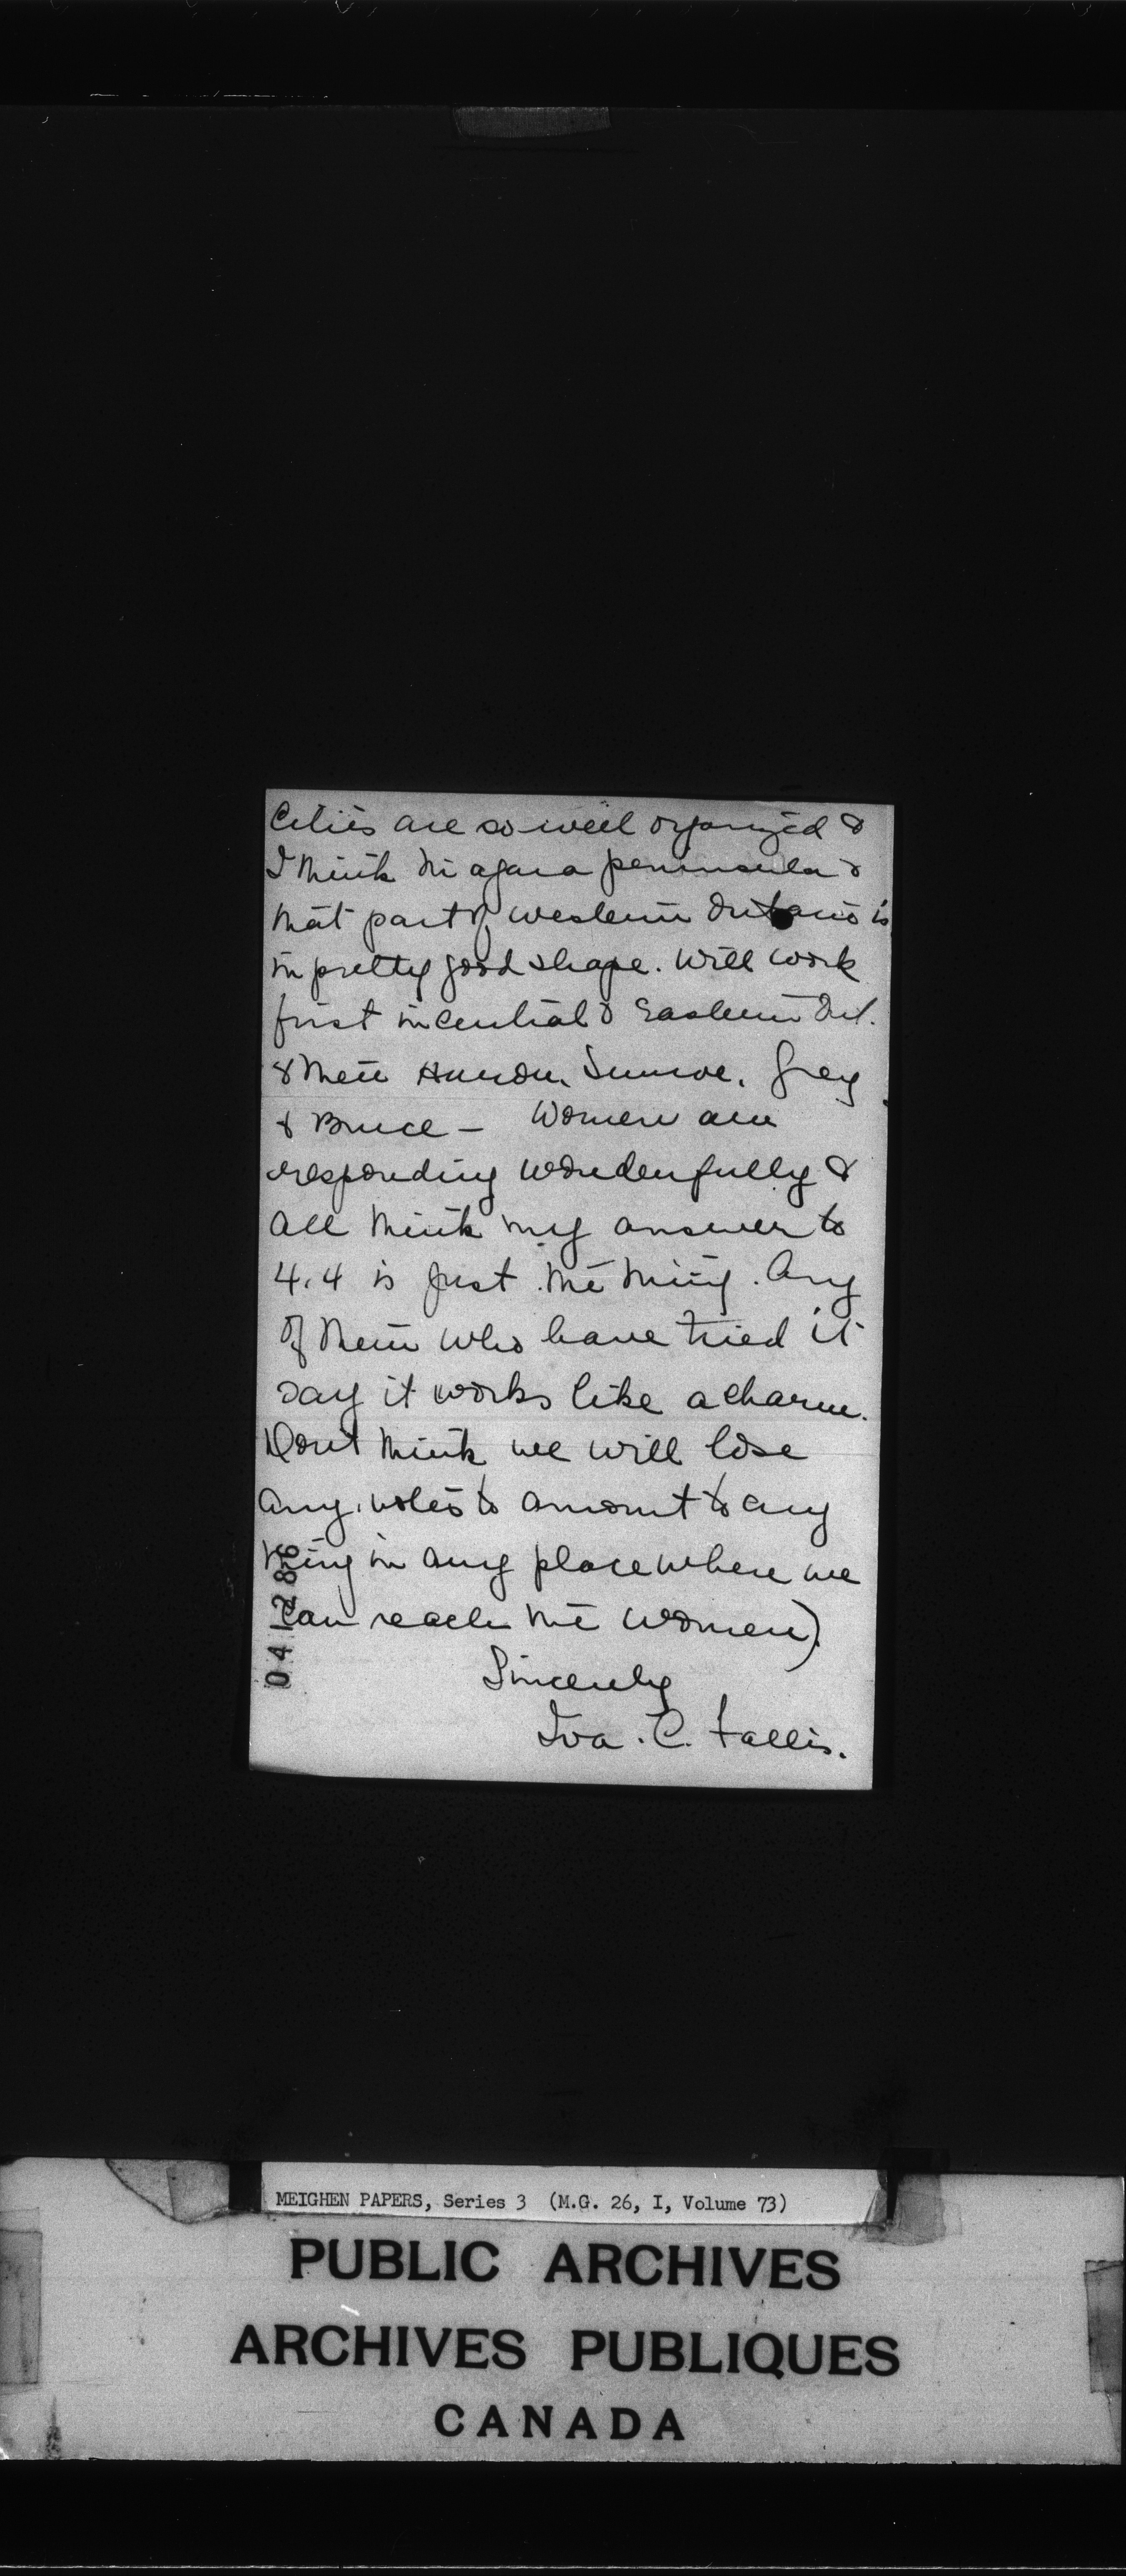 Cities are so well organized &
I think Niagara peninsula &
that part of western Ontario is
in pretty good shape. Will work
first in Central & Eastern Ont.
& then Huron, Simcoe, Grey
& Bruce – Women are
responding wonderfully &
all think my answer to
4.4 is just the thing. Any
of them who have tried it
say it works like a charm.
Dont think we will lose
any votes to amount to any
thing in any place where we
can reach the women).
Sincerely
Iva. C. Fallis.
041286
MEIGHEN PAPERS, Series 3 (M.G. 26, I, Volume 73)
PUBLIC ARCHIVES
ARCHIVES PUBLIQUES
CANADA